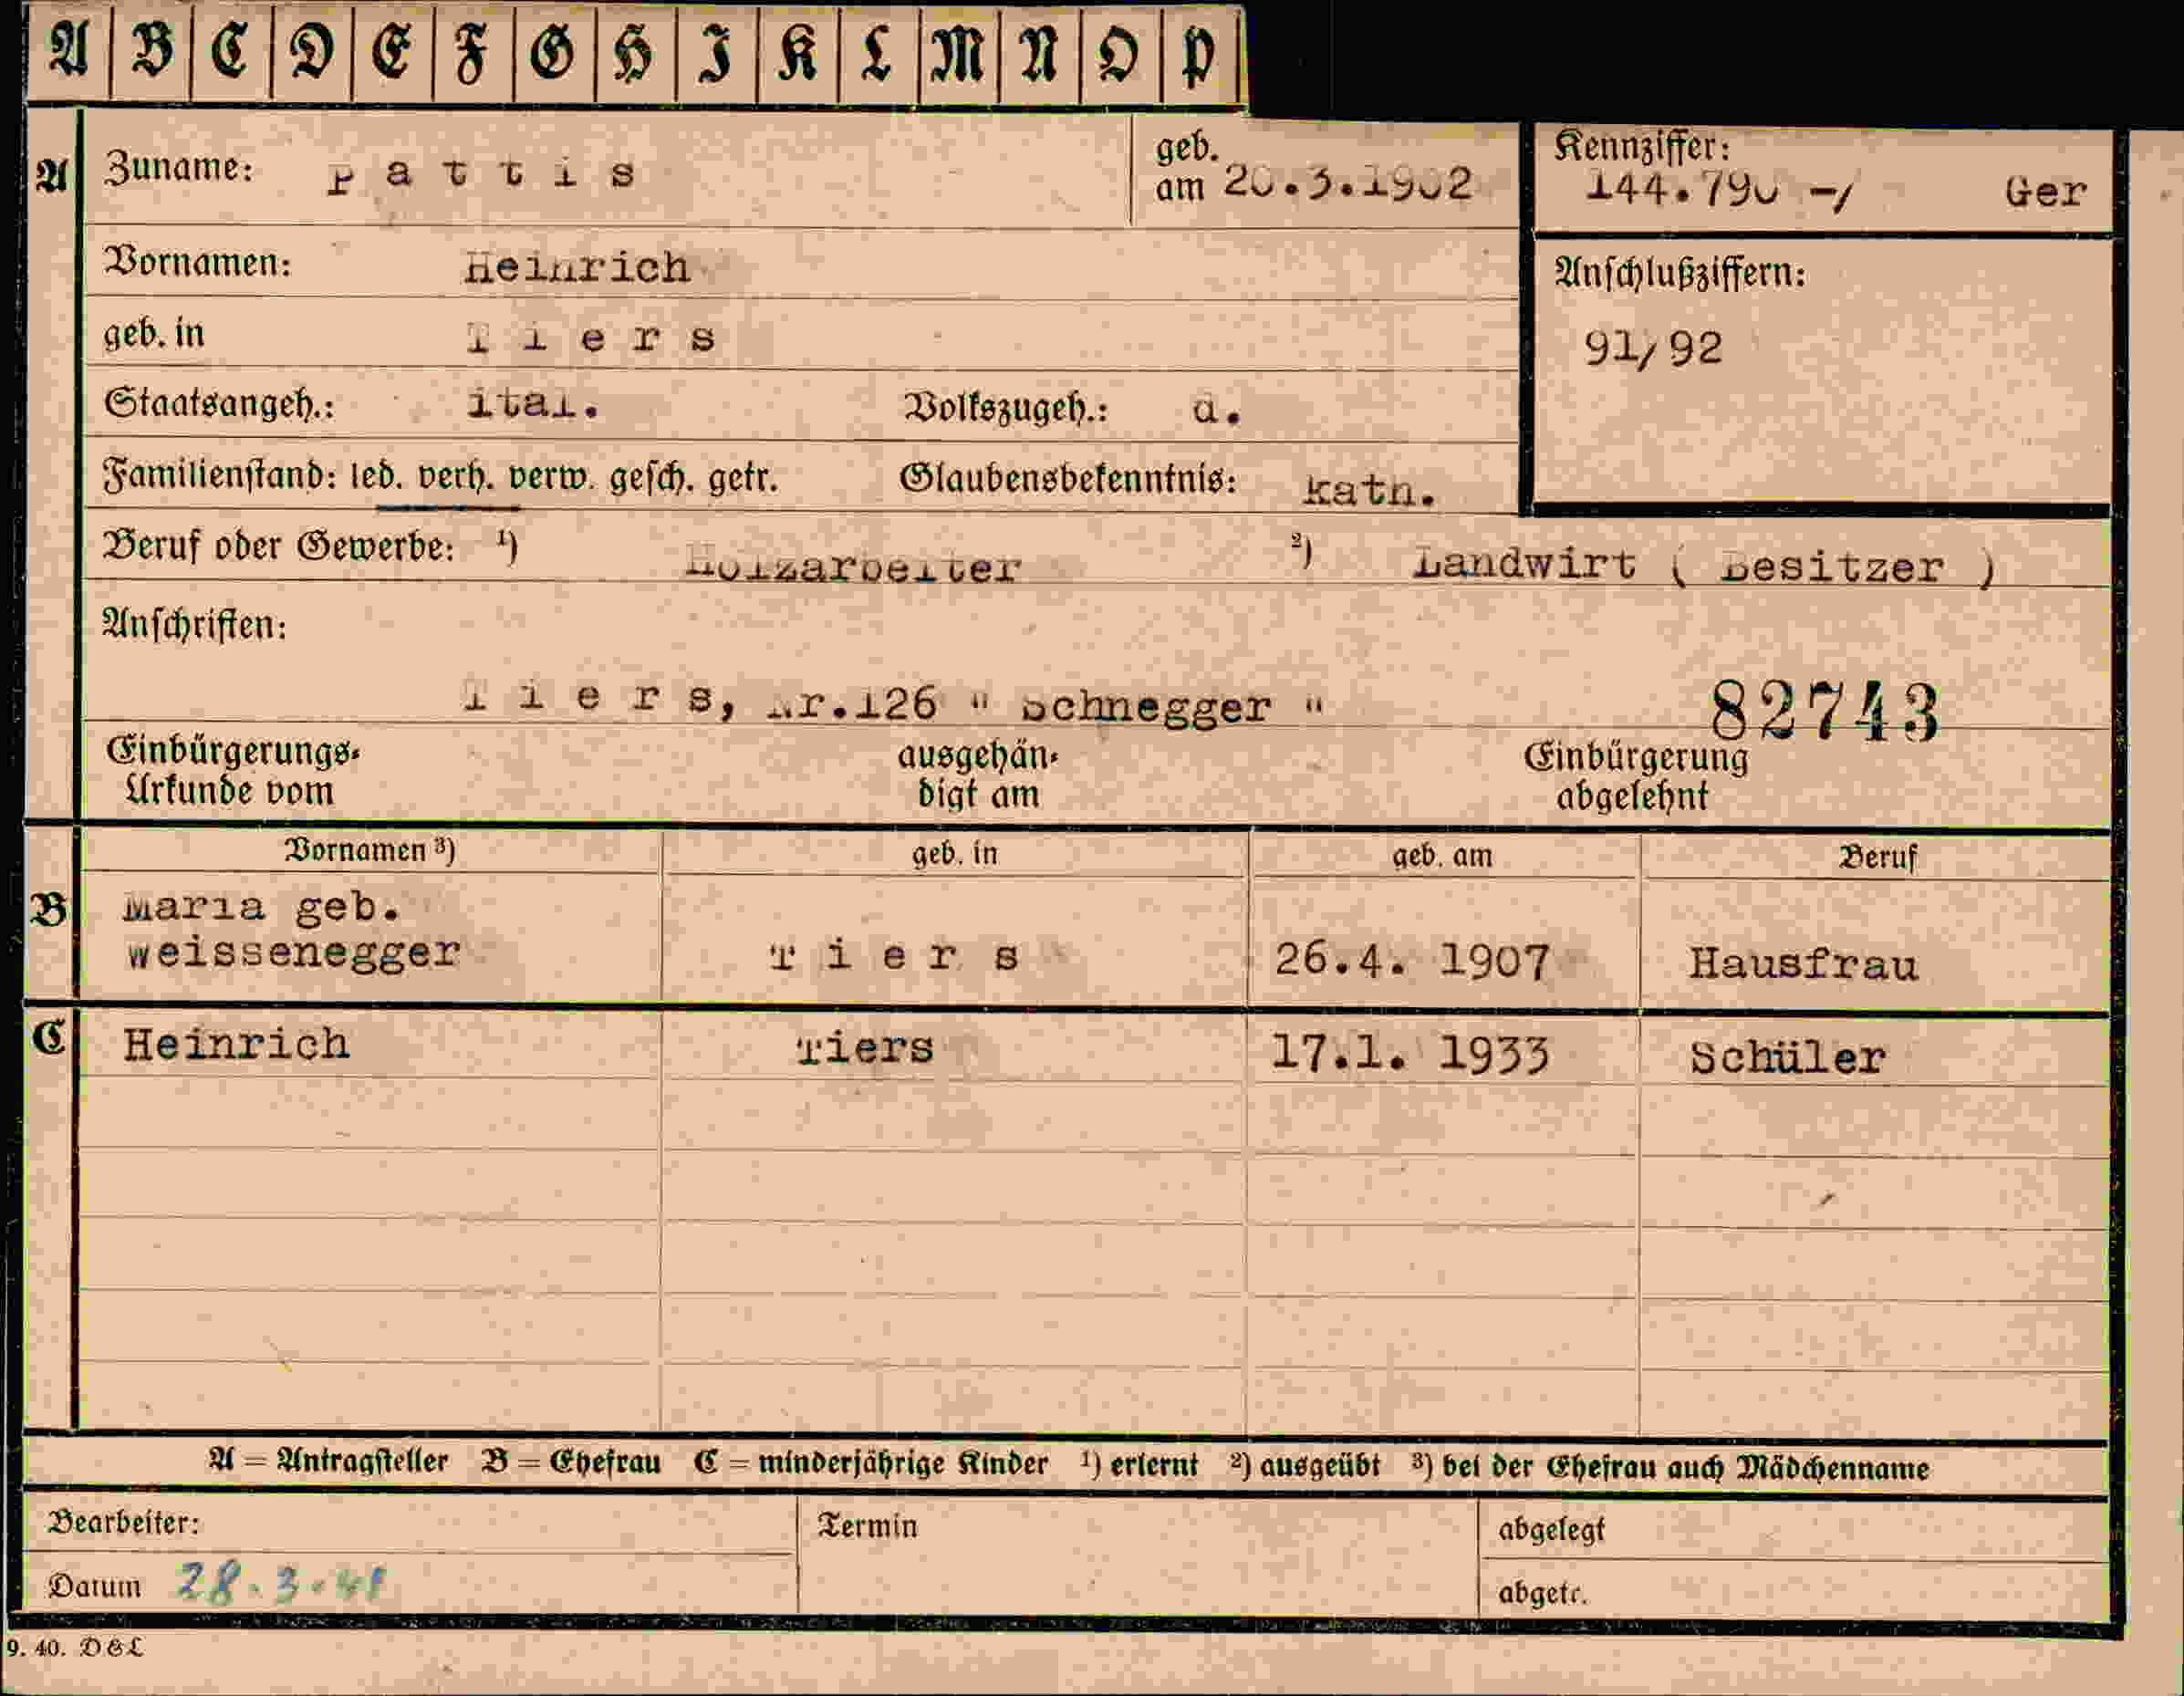 A B C D E F G H I K L M N O P
A Zuname: Pattis geb. am 20.3.1902 Kennziffer: 144.790 -/ Ger
Vornamen: Heinrich Anschlußziffern:
geb. in Tiers 91/92
Staatsangeh.: ital. Volkszugeh.: d.
Familienstand: led. verh. verw. gesch. getr. Glaubensbekenntnis: kath.
Beruf oder Gewerbe: 1) Holzarbeiter 2) Landwirt ( Besitzer )
Anschriften:
Tiers, Nr.126 " Schnegger " 82743
Einbürgerungs-Urkunde vom ausgehändigt am Einbürgerung abgelehnt
Vornamen 3) geb. in geb. am Beruf
B Maria geb.
Weissenegger Tiers 26.4. 1907 Hausfrau
C Heinrich Tiers 17.1. 1933 Schüler
A = Antragsteller B = Ehefrau C = minderjährige Kinder 1) erlernt 2) ausgeübt 3) bei der Ehefrau auch Mädchenname
Bearbeiter: Termin abgelegt
Datum 28.3.41 abgetr.
9. 40. D&L